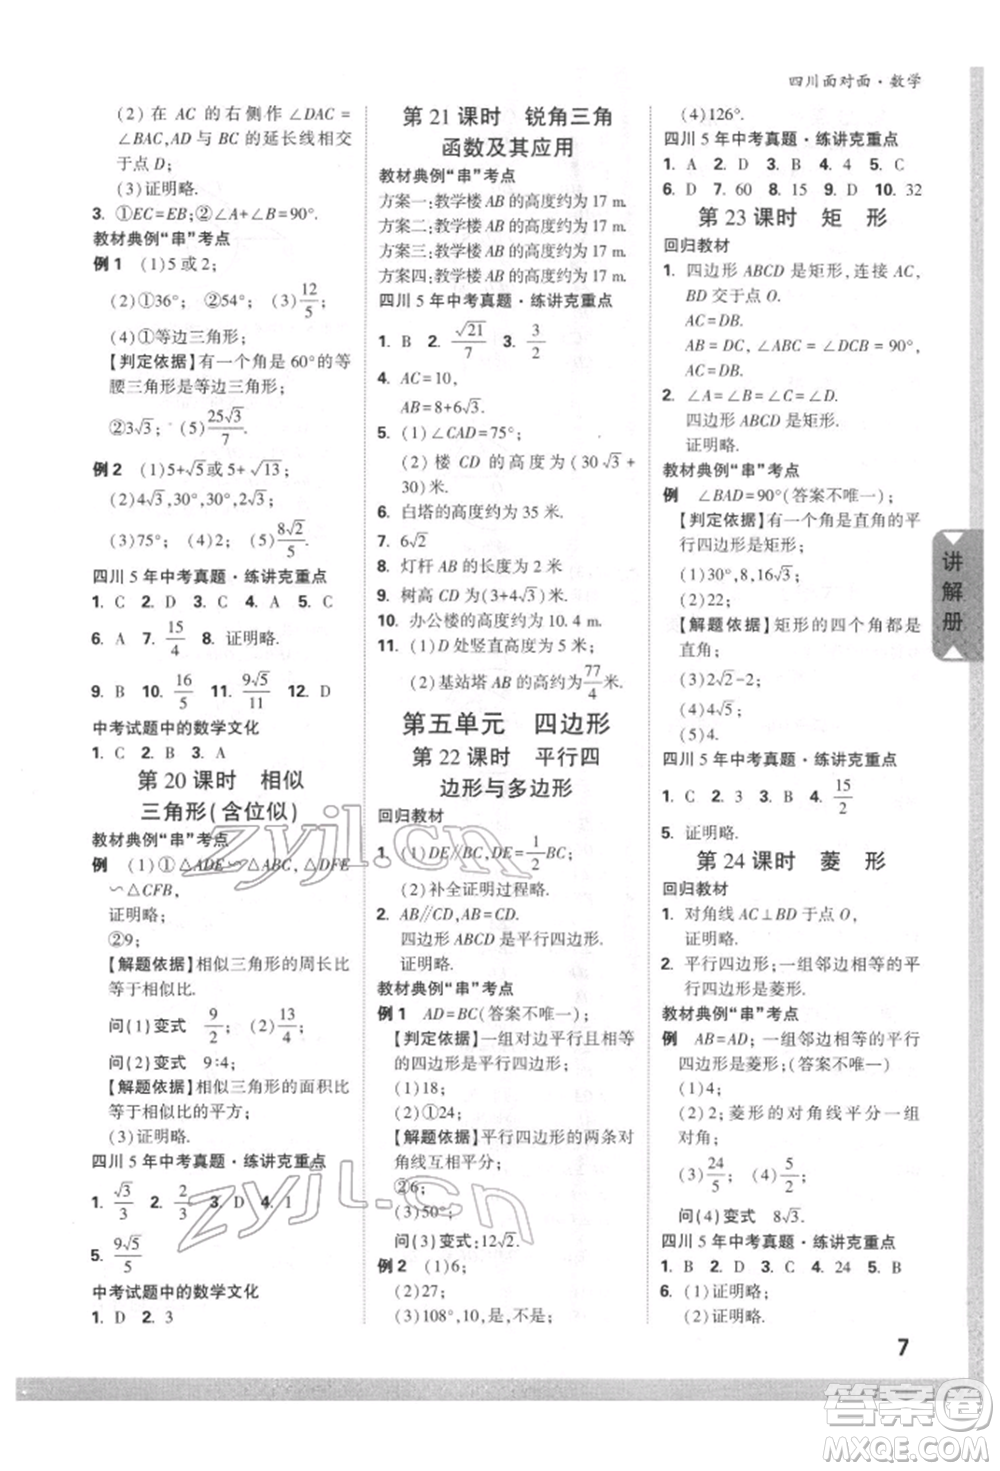 四川面对面·数学
(2)在 AC 的右侧作∠DAC=
∠BAC,AD与BC的延长线相交
于点D;
(3)证明略.
3. ①EC=EB;②∠A+∠B=90°.
教材典例“串”考点
例1 (1)5或2;
(2)①36°; ②54°; (3)12/5
(4)①等边三角形;
【判定依据】有一个角是60°的等
腰三角形是等边三角形;
②3√3; (5)25√3/7
例2 (1)5+√5或5+√13;
(2)4√3,30°,30°,2√3;
(3)75°; (4)2; (5)8√2/5
四川5年中考真题·练讲克重点
1. C 2. D 3. D 4. A 5. C
6. A 7. 15/4 8. 证明略.
9. B 10. 16/5 11. 9√5/11 12. D
中考试题中的数学文化
1. C 2. B 3. A
第20课时 相似
三角形(含位似)
教材典例“串”考点
例 (1)①△ADE∽△ABC,△DFE
∽△CFB,
证明略;
②9;
【解题依据】相似三角形的周长比
等于相似比.
问(1)变式 9/2; (2)13/4;
问(2)变式 9:4;
【解题依据】相似三角形的面积比
等于相似比的平方;
(3)证明略.
四川5年中考真题·练讲克重点
1. √3/3 2. 2/3 3. D 4. 1
5. 9√5/5
中考试题中的数学文化
1. D 2. 3
第21课时 锐角三角
函数及其应用
教材典例“串”考点
方案一:教学楼AB的高度约为17 m.
方案二:教学楼AB的高度约为17 m.
方案三:教学楼AB的高度约为17 m.
方案四:教学楼AB的高度约为17 m.
四川5年中考真题·练讲克重点
1. B 2. √21/7 3. 3/2
4. AC=10,
AB=8+6√3.
5. (1)∠CAD=75°;
(2)楼 CD 的高度为(30√3+
30)米.
6. 白塔的高度约为35米.
7. 6√2
8. 灯杆AB的长度为2米
9. 树高AB的长度为(3+4√3)米
10. 办公楼的高度约为10.4 m.
11. (1)D处竖直高度为5米;
(2)基站塔AB的高约为77/4米.
第五单元 四边形
第22课时 平行四
边形与多边形
回归教材
1. (1)DE∥BC,DE=1/2BC;
(2)补全证明过程略.
2. AB∥CD,AB=CD.
四边形ABCD是平行四边形.
证明略.
教材典例“串”考点
例1 AD=BC(答案不唯一);
【判定依据】一组对边平行且相等
的四边形是平行四边形;
(1)18;
(2)①24;
【解题依据】平行四边形的两条对
角线互相平分;
②6;
(3)50°;
问(3)变式:12√2.
例2 (1)6;
(2)27;
(3)108°,10,是,不是;
(4)126°.
四川5年中考真题·练讲克重点
1. A 2. D 3. B 4. D 5. C
6. D 7. 60 8. 15 9. D 10. 32
第23课时 矩 形
回归教材
1. 四边形ABCD是矩形,连接AC,
BD交于点O.
AC=DB.
AB=DC,∠ABC=∠DCB=90°,
AC=DB.
2. ∠A=∠B=∠C=∠D.
四边形ABCD是矩形.
证明略.
教材典例“串”考点
例 ∠BAD=90°(答案不唯一);
【判定依据】有一个角是直角的平
行四边形是矩形;
(1)30°,8,16√3;
(2)22;
【解题依据】矩形的四个角都是
直角;
(3)2√2-2;
(4)4√5;
(5)4.
四川5年中考真题·练讲克重点
1. C 2. D 3. B 4. 15/2
5. 证明略.
第24课时 菱 形
回归教材
1. 对角线AC⊥BD于点O,
证明略.
2. 平行四边形;一组邻边相等的平
行四边形是菱形.
教材典例“串”考点
例 AB=AD;一组邻边相等的平行
四边形是菱形;(答案不唯一)
(1)4;
(2)2;菱形的对角线平分一组
对角;
(3)24/5; (4)5/2;
问(4)变式 8√3.
四川5年中考真题·练讲克重点
1. B 2. D 3. C 4. 24 5. B
6. (1)证明略;
(2)证明略.
讲解册
7
zyjl.cn
zyjl.cn
答案圈
MXQE.COM